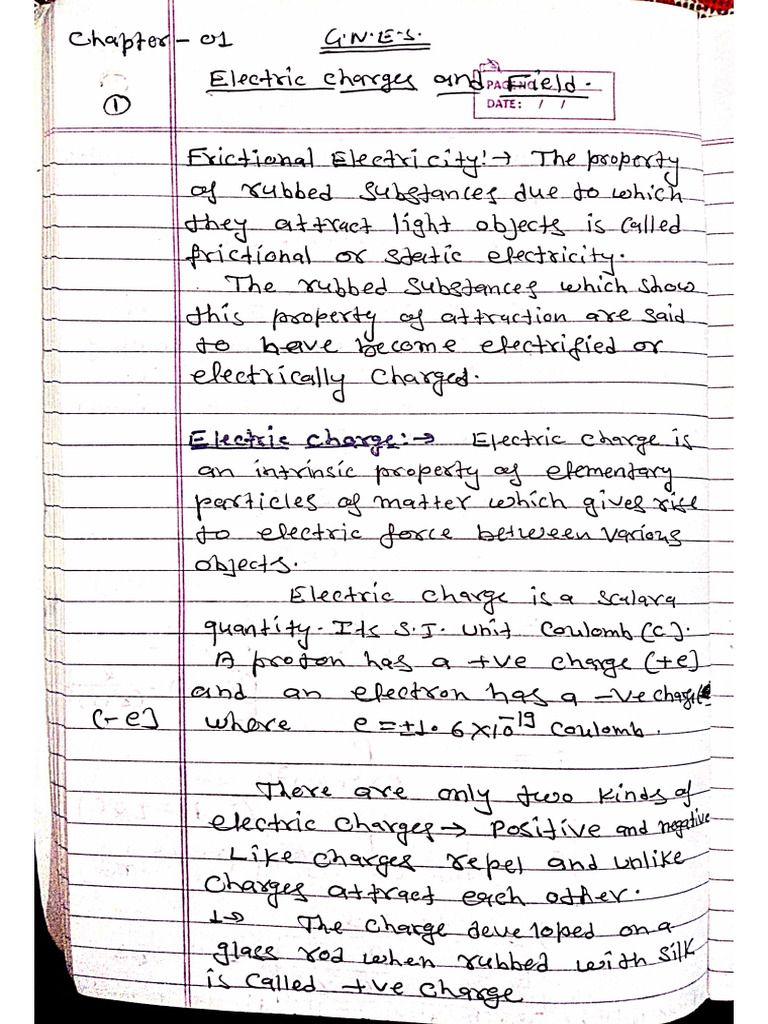 Chapter-01 G.N.E.S.
Electric charges and Field.
PAGE NO.
DATE: / /
①
Frictional Electricity:→ The property
of rubbed substances due to which
they attract light objects is called
frictional or static electricity.
The rubbed substances which show
this property of attraction are said
to have become electrified or
electrically charged.
Electric charge:→ Electric charge is
an intrinsic property of elementary
particles of matter which gives rise
to electric force between various
objects.
Electric charge is a scalara
quantity. Its S.I. unit Coulomb (c).
A proton has a +ve charge (+e)
and an electron has a -ve charge
(-e) where e = ±1.6×10⁻¹⁹ Coulomb.
There are only two kinds of
electric charges → positive and negative
Like charges repel and unlike
charges attract each other.
1→ The charge developed on a
glass rod when rubbed with silk
is called +ve charge